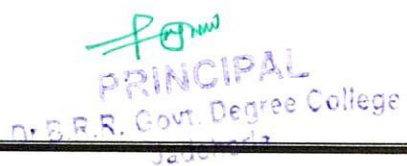 PRINCIPAL
Dr. B.R.R. Govt. Degree College
Jadcherla